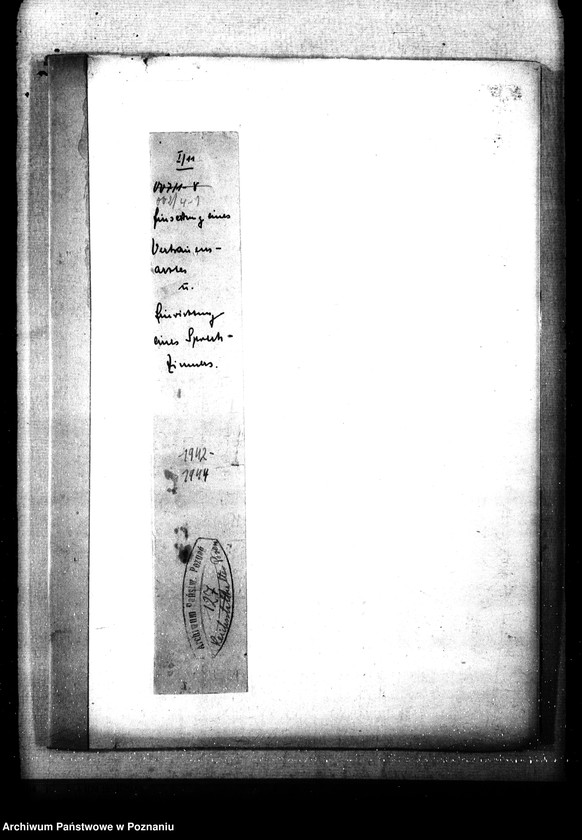 I/11
002/4-1
Einsetzung eines
Vertrauens-
arztes
u.
Einrichtung
eines Sprech-
Zimmers.
1942-
1944
Archiwum Państw. Poznań
127
Archiwum Państwowe w Poznaniu